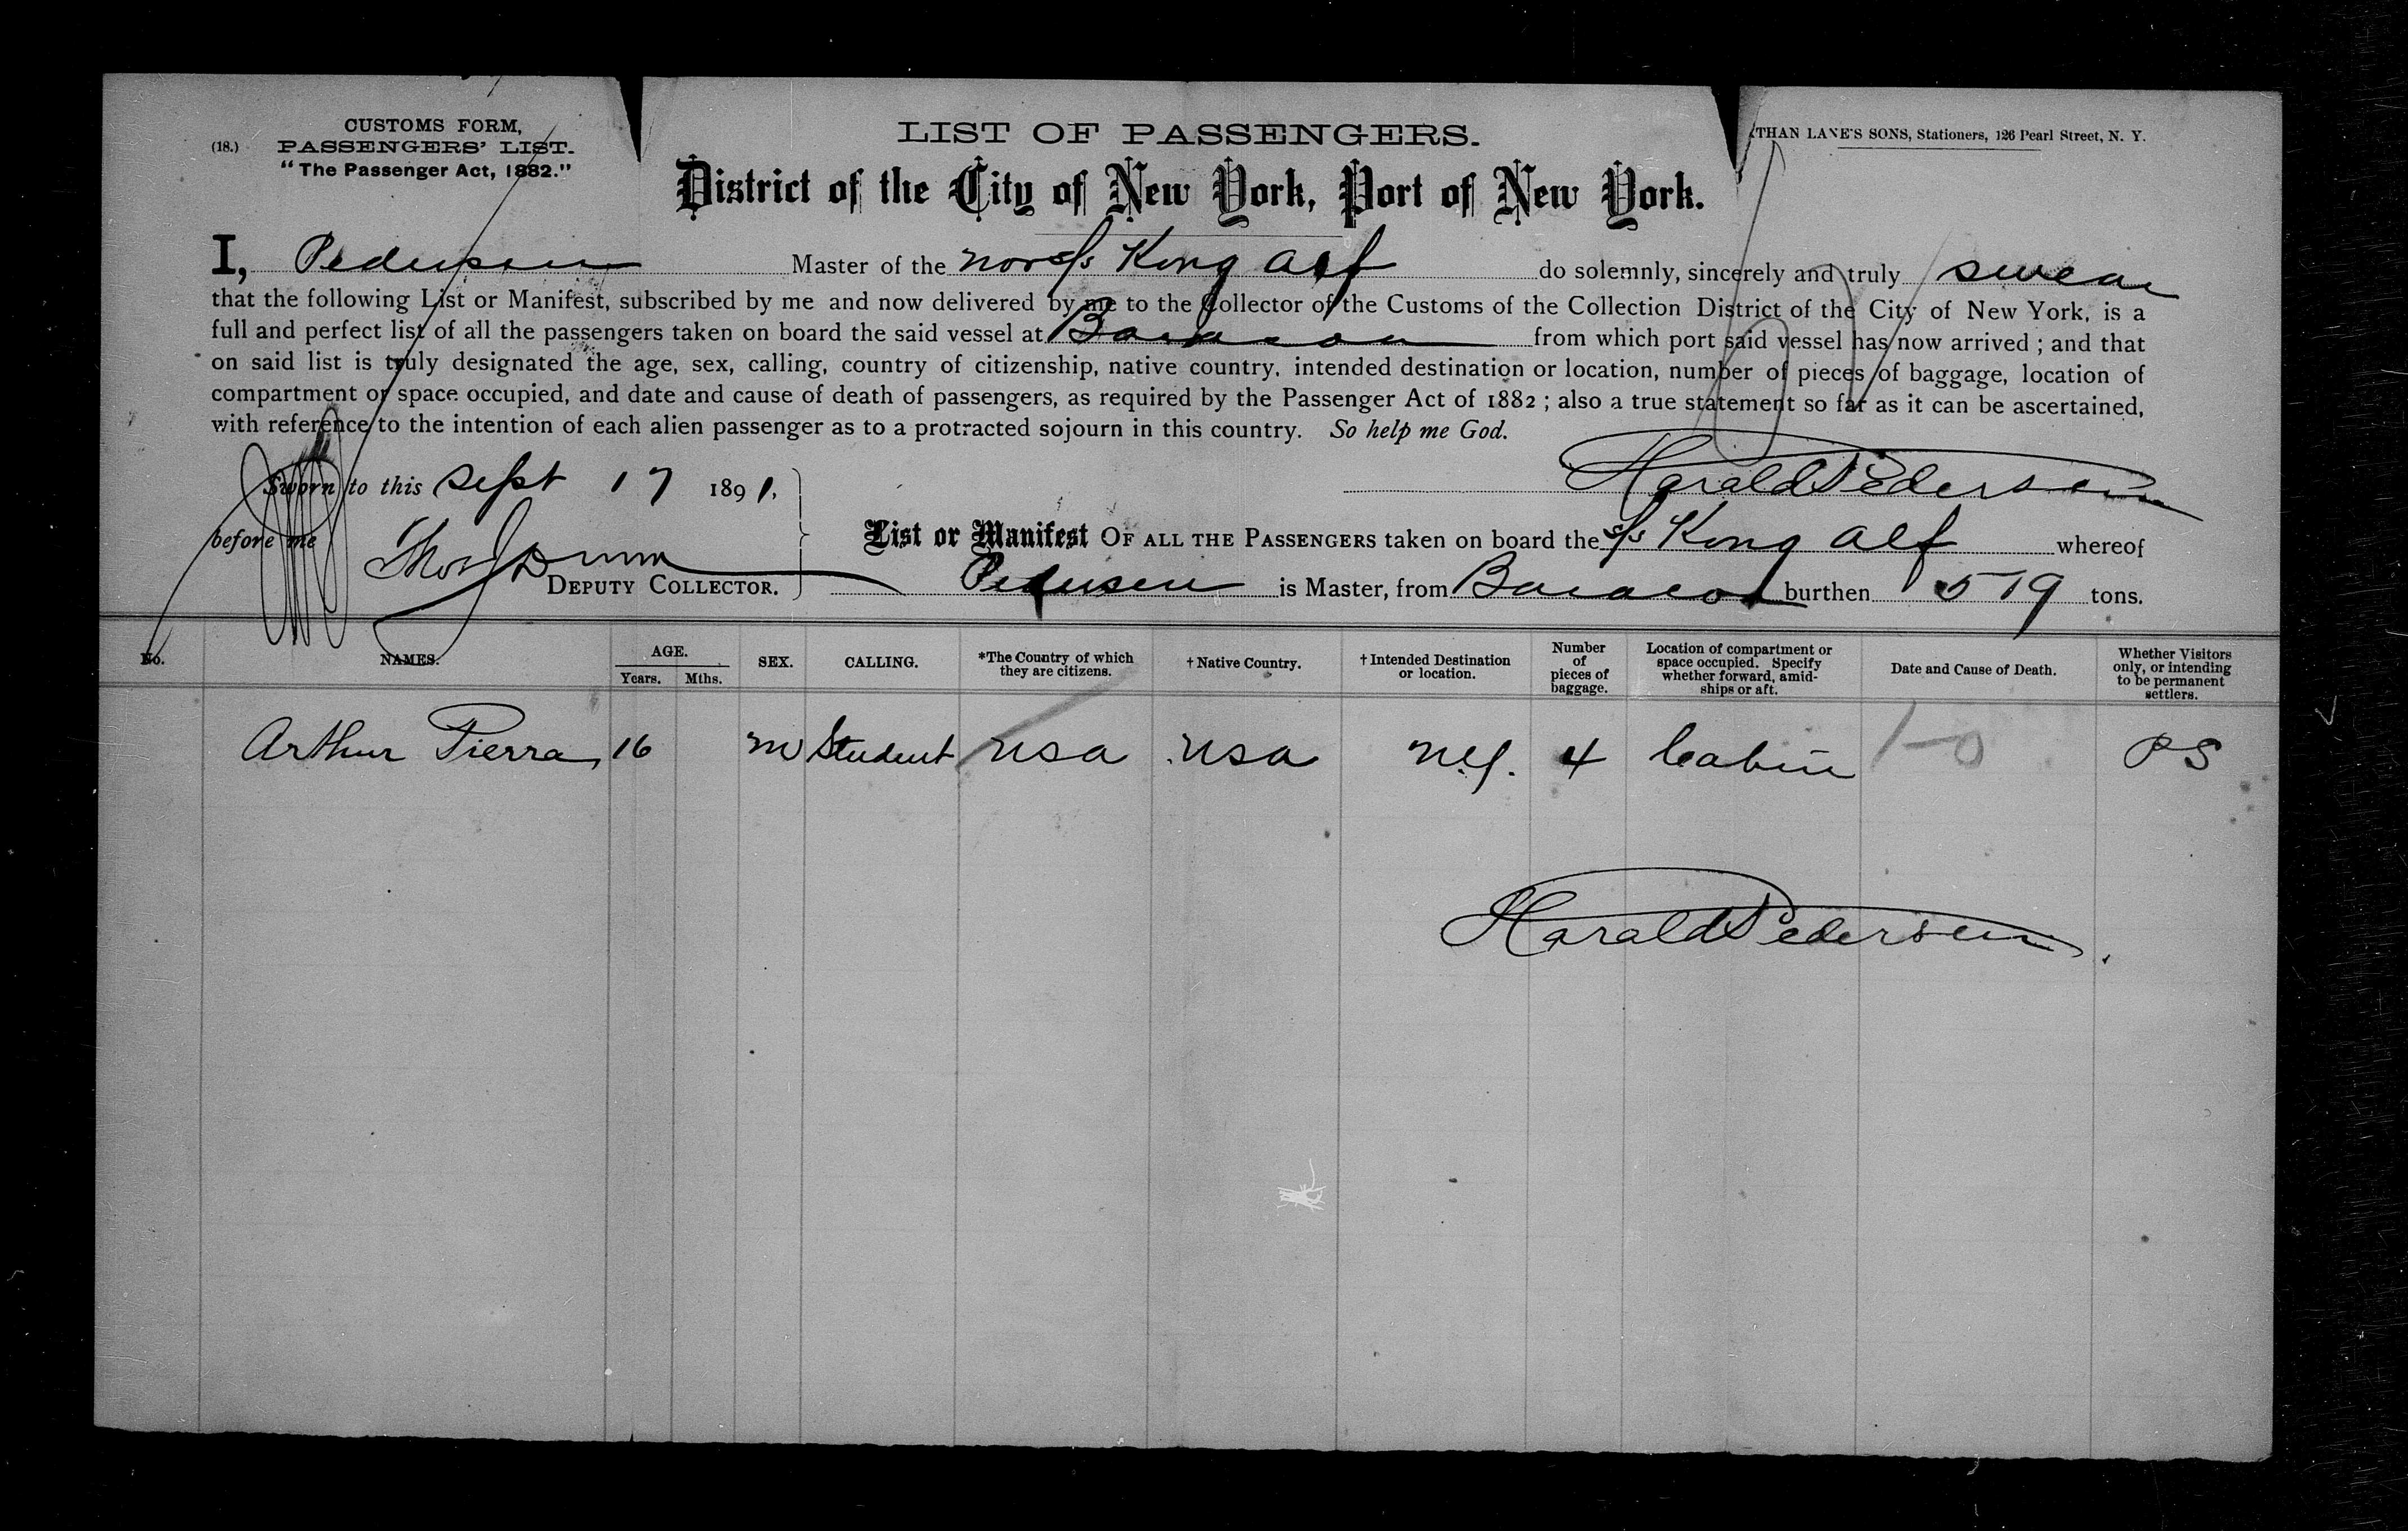 CUSTOMS FORM,
(18.) PASSENGERS' LIST.
"The Passenger Act, 1882."
LIST OF PASSENGERS.
THAN LANE'S SONS, Stationers, 126 Pearl Street, N. Y.
District of the City of New York, Port of New York.
I, Pedersen Master of the Nor s/s Kong Alf do solemnly, sincerely and truly swear
that the following List or Manifest, subscribed by me and now delivered by me to the Collector of the Customs of the Collection District of the City of New York, is a
full and perfect list of all the passengers taken on board the said vessel at Baracoa from which port said vessel has now arrived ; and that
on said list is truly designated the age, sex, calling, country of citizenship, native country, intended destination or location, number of pieces of baggage, location of
compartment or space occupied, and date and cause of death of passengers, as required by the Passenger Act of 1882 ; also a true statement so far as it can be ascertained,
with reference to the intention of each alien passenger as to a protracted sojourn in this country. So help me God.
Sworn to this Sept 17 1891.
Harald Pedersen
before me
DEPUTY COLLECTOR.
List or Manifest OF ALL THE PASSENGERS taken on board the s/s Kong Alf whereof
Pedersen is Master, from Baracoa burthen 519 tons.
No. NAMES. AGE. Years. Mths. SEX. CALLING. *The Country of which they are citizens. † Native Country. † Intended Destination or location. Number of pieces of baggage. Location of compartment or space occupied. Specify whether forward, amidships or aft. Date and Cause of Death. Whether Visitors only, or intending to be permanent settlers.
Arthur Pierra 16 m Student USA USA N.Y. 4 Cabin PS
Harald Pedersen.